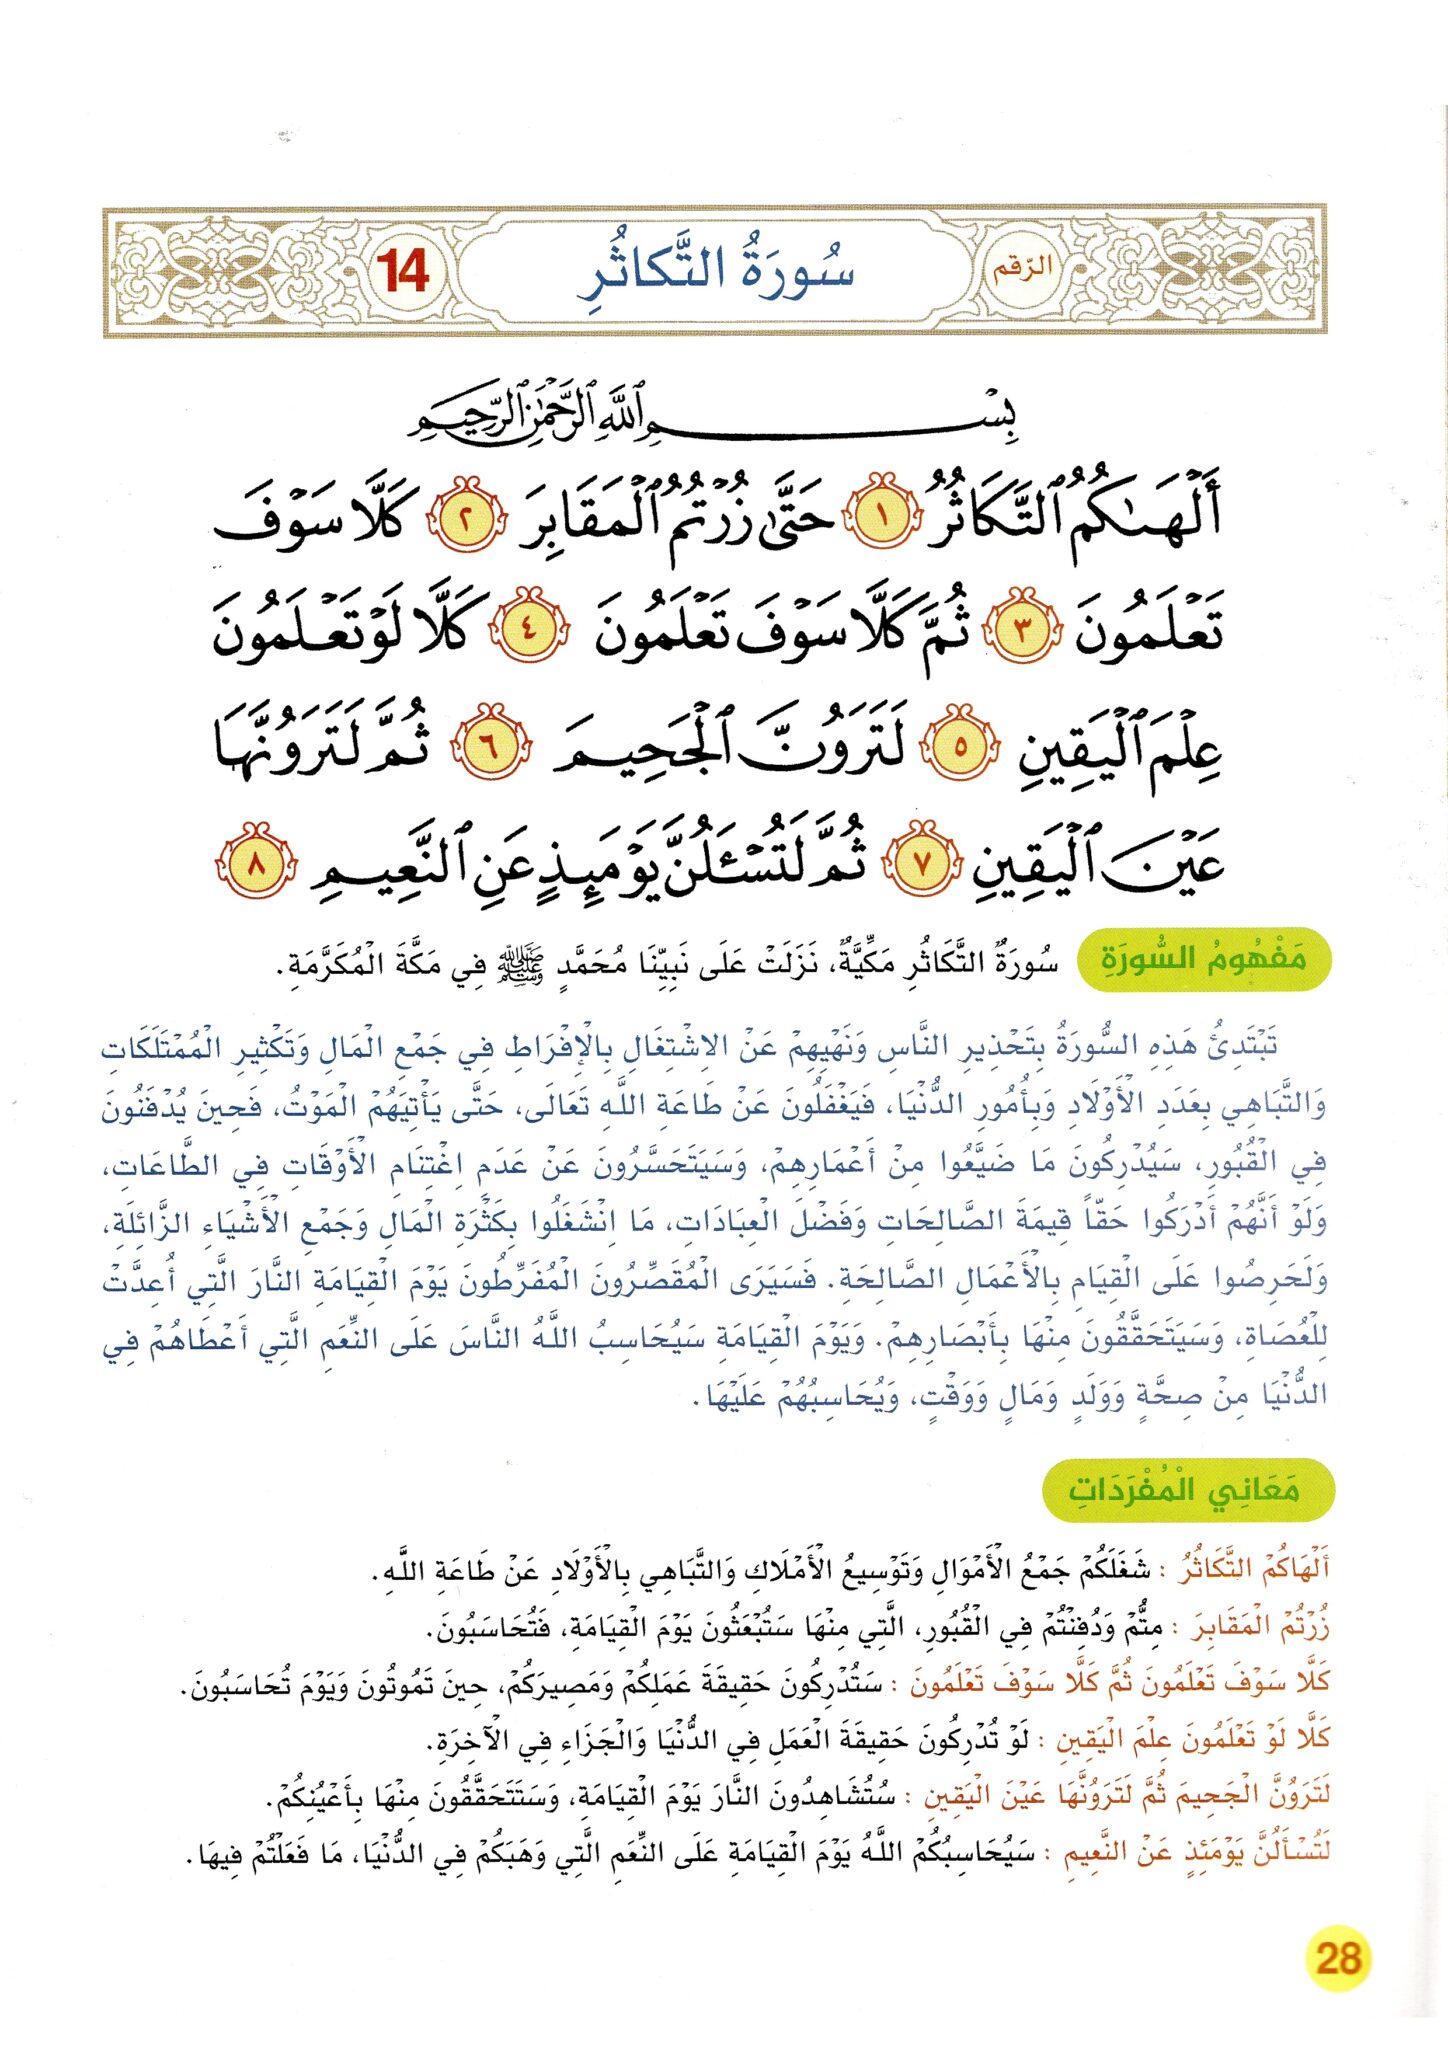 الرّقم سُورَةُ التَّكاثُرِ 14
بِسْمِ ٱللَّهِ ٱلرَّحْمَٰنِ ٱلرَّحِيمِ
أَلْهَىٰكُمُ ٱلتَّكَاثُرُ ١ حَتَّىٰ زُرْتُمُ ٱلْمَقَابِرَ ٢ كَلَّا سَوْفَ
تَعْلَمُونَ ٣ ثُمَّ كَلَّا سَوْفَ تَعْلَمُونَ ٤ كَلَّا لَوْ تَعْلَمُونَ
عِلْمَ ٱلْيَقِينِ ٥ لَتَرَوُنَّ ٱلْجَحِيمَ ٦ ثُمَّ لَتَرَوُنَّهَا
عَيْنَ ٱلْيَقِينِ ٧ ثُمَّ لَتُسْـَٔلُنَّ يَوْمَئِذٍ عَنِ ٱلنَّعِيمِ ٨
مَفْهُومُ السُّورَةِ سُورَةُ التَّكَاثُرِ مَكِّيَّةٌ، نَزَلَتْ عَلَى نَبِيِّنَا مُحَمَّدٍ ﷺ فِي مَكَّةَ الْمُكَرَّمَةِ.
تَبْتَدِئُ هَذِهِ السُّورَةُ بِتَحْذِيرِ النَّاسِ وَنَهْيِهِمْ عَنْ الاِشْتِغَالِ بِالْإِفْرَاطِ فِي جَمْعِ الْمَالِ وَتَكْثِيرِ الْمُمْتَلَكَاتِ
وَالتَّبَاهِي بِعَدَدِ الْأَوْلَادِ وَبِأُمُورِ الدُّنْيَا، فَيَغْفَلُونَ عَنْ طَاعَةِ اللَّهِ تَعَالَى، حَتَّى يَأْتِيَهُمْ الْمَوْتُ، فَحِينَ يُدْفَنُونَ
فِي الْقُبُورِ، سَيُدْرِكُونَ مَا ضَيَّعُوا مِنْ أَعْمَارِهِمْ، وَسَيَتَحَسَّرُونَ عَنْ عَدَمِ اِغْتِنَامِ الْأَوْقَاتِ فِي الطَّاعَاتِ،
وَلَوْ أَنَّهُمْ أَدْرَكُوا حَقّاً قِيمَةَ الصَّالِحَاتِ وَفَضْلَ الْعِبَادَاتِ، مَا اِنْشَغَلُوا بِكَثْرَةِ الْمَالِ وَجَمْعِ الْأَشْيَاءِ الزَّائِلَةِ،
وَلَحَرِصُوا عَلَى الْقِيَامِ بِالْأَعْمَالِ الصَّالِحَةِ. فَسَيَرَى الْمُقَصِّرُونَ الْمُفَرِّطُونَ يَوْمَ الْقِيَامَةِ النَّارَ الَّتِي أُعِدَّتْ
لِلْعُصَاةِ، وَسَيَتَحَقَّقُونَ مِنْهَا بِأَبْصَارِهِمْ. وَيَوْمَ الْقِيَامَةِ سَيُحَاسِبُ اللَّهُ النَّاسَ عَلَى النِّعَمِ الَّتِي أَعْطَاهُمْ فِي
الدُّنْيَا مِنْ صِحَّةٍ وَوَلَدٍ وَمَالٍ وَوَقْتٍ، وَيُحَاسِبُهُمْ عَلَيْهَا.
مَعَانِي الْمُفْرَدَاتِ
أَلْهَاكُمْ التَّكَاثُرُ : شَغَلَكُمْ جَمْعُ الْأَمْوَالِ وَتَوْسِيعُ الْأَمْلَاكِ وَالتَّبَاهِي بِالْأَوْلَادِ عَنْ طَاعَةِ اللَّهِ.
زُرْتُمْ الْمَقَابِرَ : مِتُّمْ وَدُفِنْتُمْ فِي الْقُبُورِ، الَّتِي مِنْهَا سَتُبْعَثُونَ يَوْمَ الْقِيَامَةِ، فَتُحَاسَبُونَ.
كَلَّا سَوْفَ تَعْلَمُونَ ثُمَّ كَلَّا سَوْفَ تَعْلَمُونَ : سَتُدْرِكُونَ حَقِيقَةَ عَمَلِكُمْ وَمَصِيرَكُمْ، حِينَ تَمُوتُونَ وَيَوْمَ تُحَاسَبُونَ.
كَلَّا لَوْ تَعْلَمُونَ عِلْمَ الْيَقِينِ : لَوْ تُدْرِكُونَ حَقِيقَةَ الْعَمَلِ فِي الدُّنْيَا وَالْجَزَاءِ فِي الْآخِرَةِ.
لَتَرَوُنَّ الْجَحِيمَ ثُمَّ لَتَرَوُنَّهَا عَيْنَ الْيَقِينِ : سَتُشَاهِدُونَ النَّارَ يَوْمَ الْقِيَامَةِ، وَسَتَتَحَقَّقُونَ مِنْهَا بِأَعْيُنِكُمْ.
لَتُسْأَلُنَّ يَوْمَئِذٍ عَنْ النَّعِيمِ : سَيُحَاسِبُكُمْ اللَّهُ يَوْمَ الْقِيَامَةِ عَلَى النِّعَمِ الَّتِي وَهَبَكُمْ فِي الدُّنْيَا، مَا فَعَلْتُمْ فِيهَا.
28